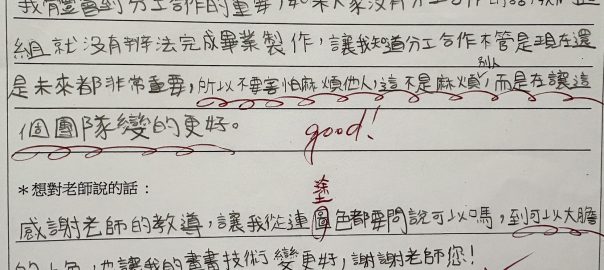 我有體會到分工合作的重要，如果大家沒有分工合作的話，我們這
組就沒有辦法完成畢業製作，讓我知道分工合作不管是現在還
是未來都非常重要，所以不要害怕麻煩他人，這不是麻煩別人，而是在讓這
個團隊變的更好。
good!
＊想對老師說的話：
塗
感謝老師的教導，讓我從連圖色都要問說可以嗎，到可以大膽
的上色，也讓我的畫畫技術變更好，謝謝老師您！